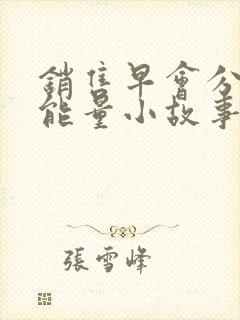 銷售早會分
能量小故事
張雪峰